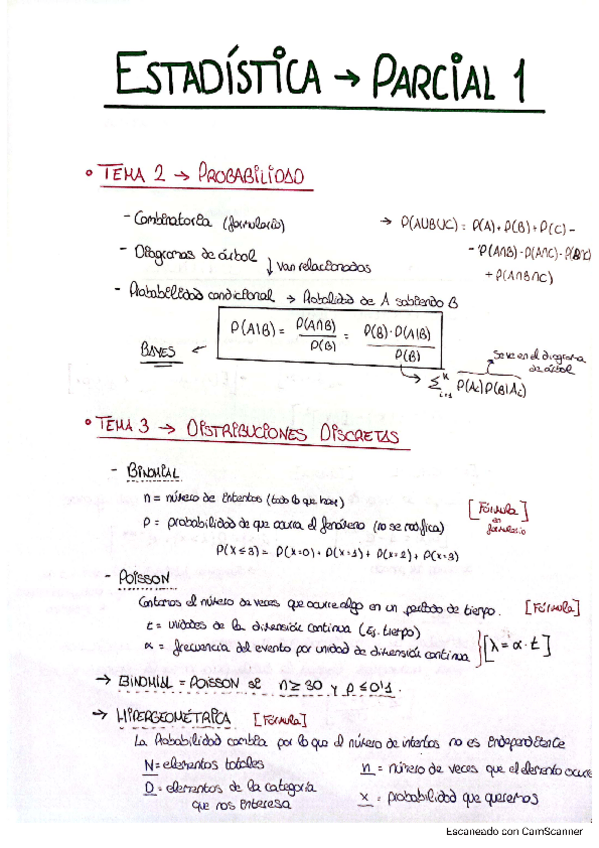 ESTADÍSTICA → PARCIAL 1
• TEMA 2 → PROBABILIDAD
- Combinatoria (formulario)
→ P(AUBUC) = P(A) + P(B) + P(C) -
- P(A∩B) - P(A∩C) - P(B∩C)
+ P(A∩B∩C)
- Diagramas de árbol
↓ Van relacionados
- Probabilidad condicional → Probabilidad de A sabiendo B
BAYES ← P(A|B) = P(A∩B) / P(B) = P(B)·P(A|B) / P(B)
→ Σ i=1 K P(Ai)P(B|Ai)
Se ve en el diagrama
de árbol
• TEMA 3 → DISTRIBUCIONES DISCRETAS
- BINOMIAL
n = número de intentos (todo lo que hay)
p = probabilidad de que ocurra el fenómeno (no se modifica)
[Fórmula]
en
formulario
P(X≤3) = P(X=0) + P(X=1) + P(X=2) + P(X=3)
- POISSON
Contamos el número de veces que ocurre algo en un período de tiempo. [Fórmula]
t = unidades de la dimensión continua (Ej. tiempo)
α = frecuencia del evento por unidad de dimensión continua
[λ = α · t]
→ BINOMIAL = POISSON si n ≥ 30 y p ≤ 0'1.
→ HIPERGEOMÉTRICA [Fórmula]
La Probabilidad cambia por lo que el número de intentos no es independiente
N = elementos totales
n = número de veces que el elemento ocurre
D = elementos de la categoría
que nos interesa
x = probabilidad que queremos
Escaneado con CamScanner